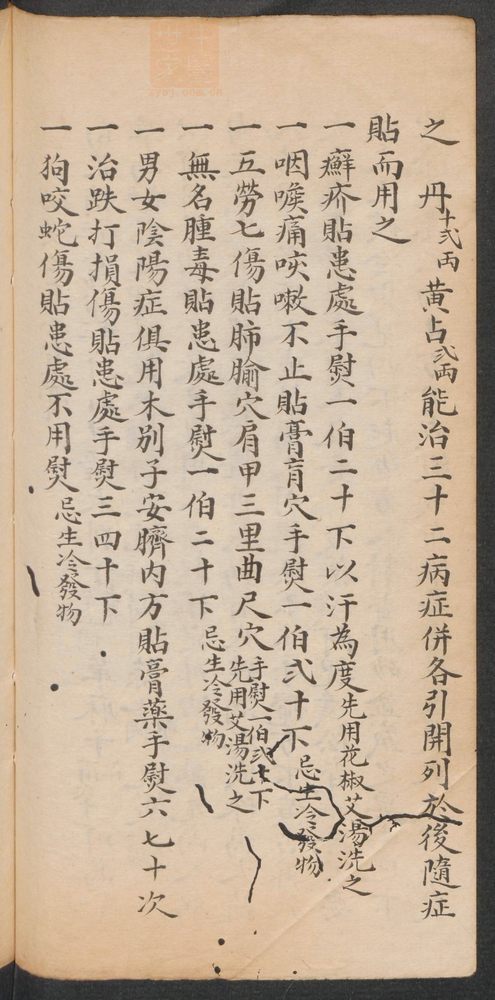 之 丹十弍両 黄占弍両能治三十二病症併各引開列於後隨症
貼而用之
一癬疥貼患處手熨一伯二十下以汗為度先用花椒艾湯洗之
一咽喉痛咳嗽不止貼膏肓穴手熨一伯弍十下忌生冷發物
一五勞七傷貼肺腧穴肩甲三里曲尺穴手熨一伯弍十下先用艾湯洗之
一無名腫毒貼患處手熨一伯二十下忌生冷發物
一男女陰陽症俱用木别子安臍内方貼膏藥手熨六七十次
一治跌打損傷貼患處手熨三四十下
一狗咬蛇傷貼患處不用熨忌生冷發物